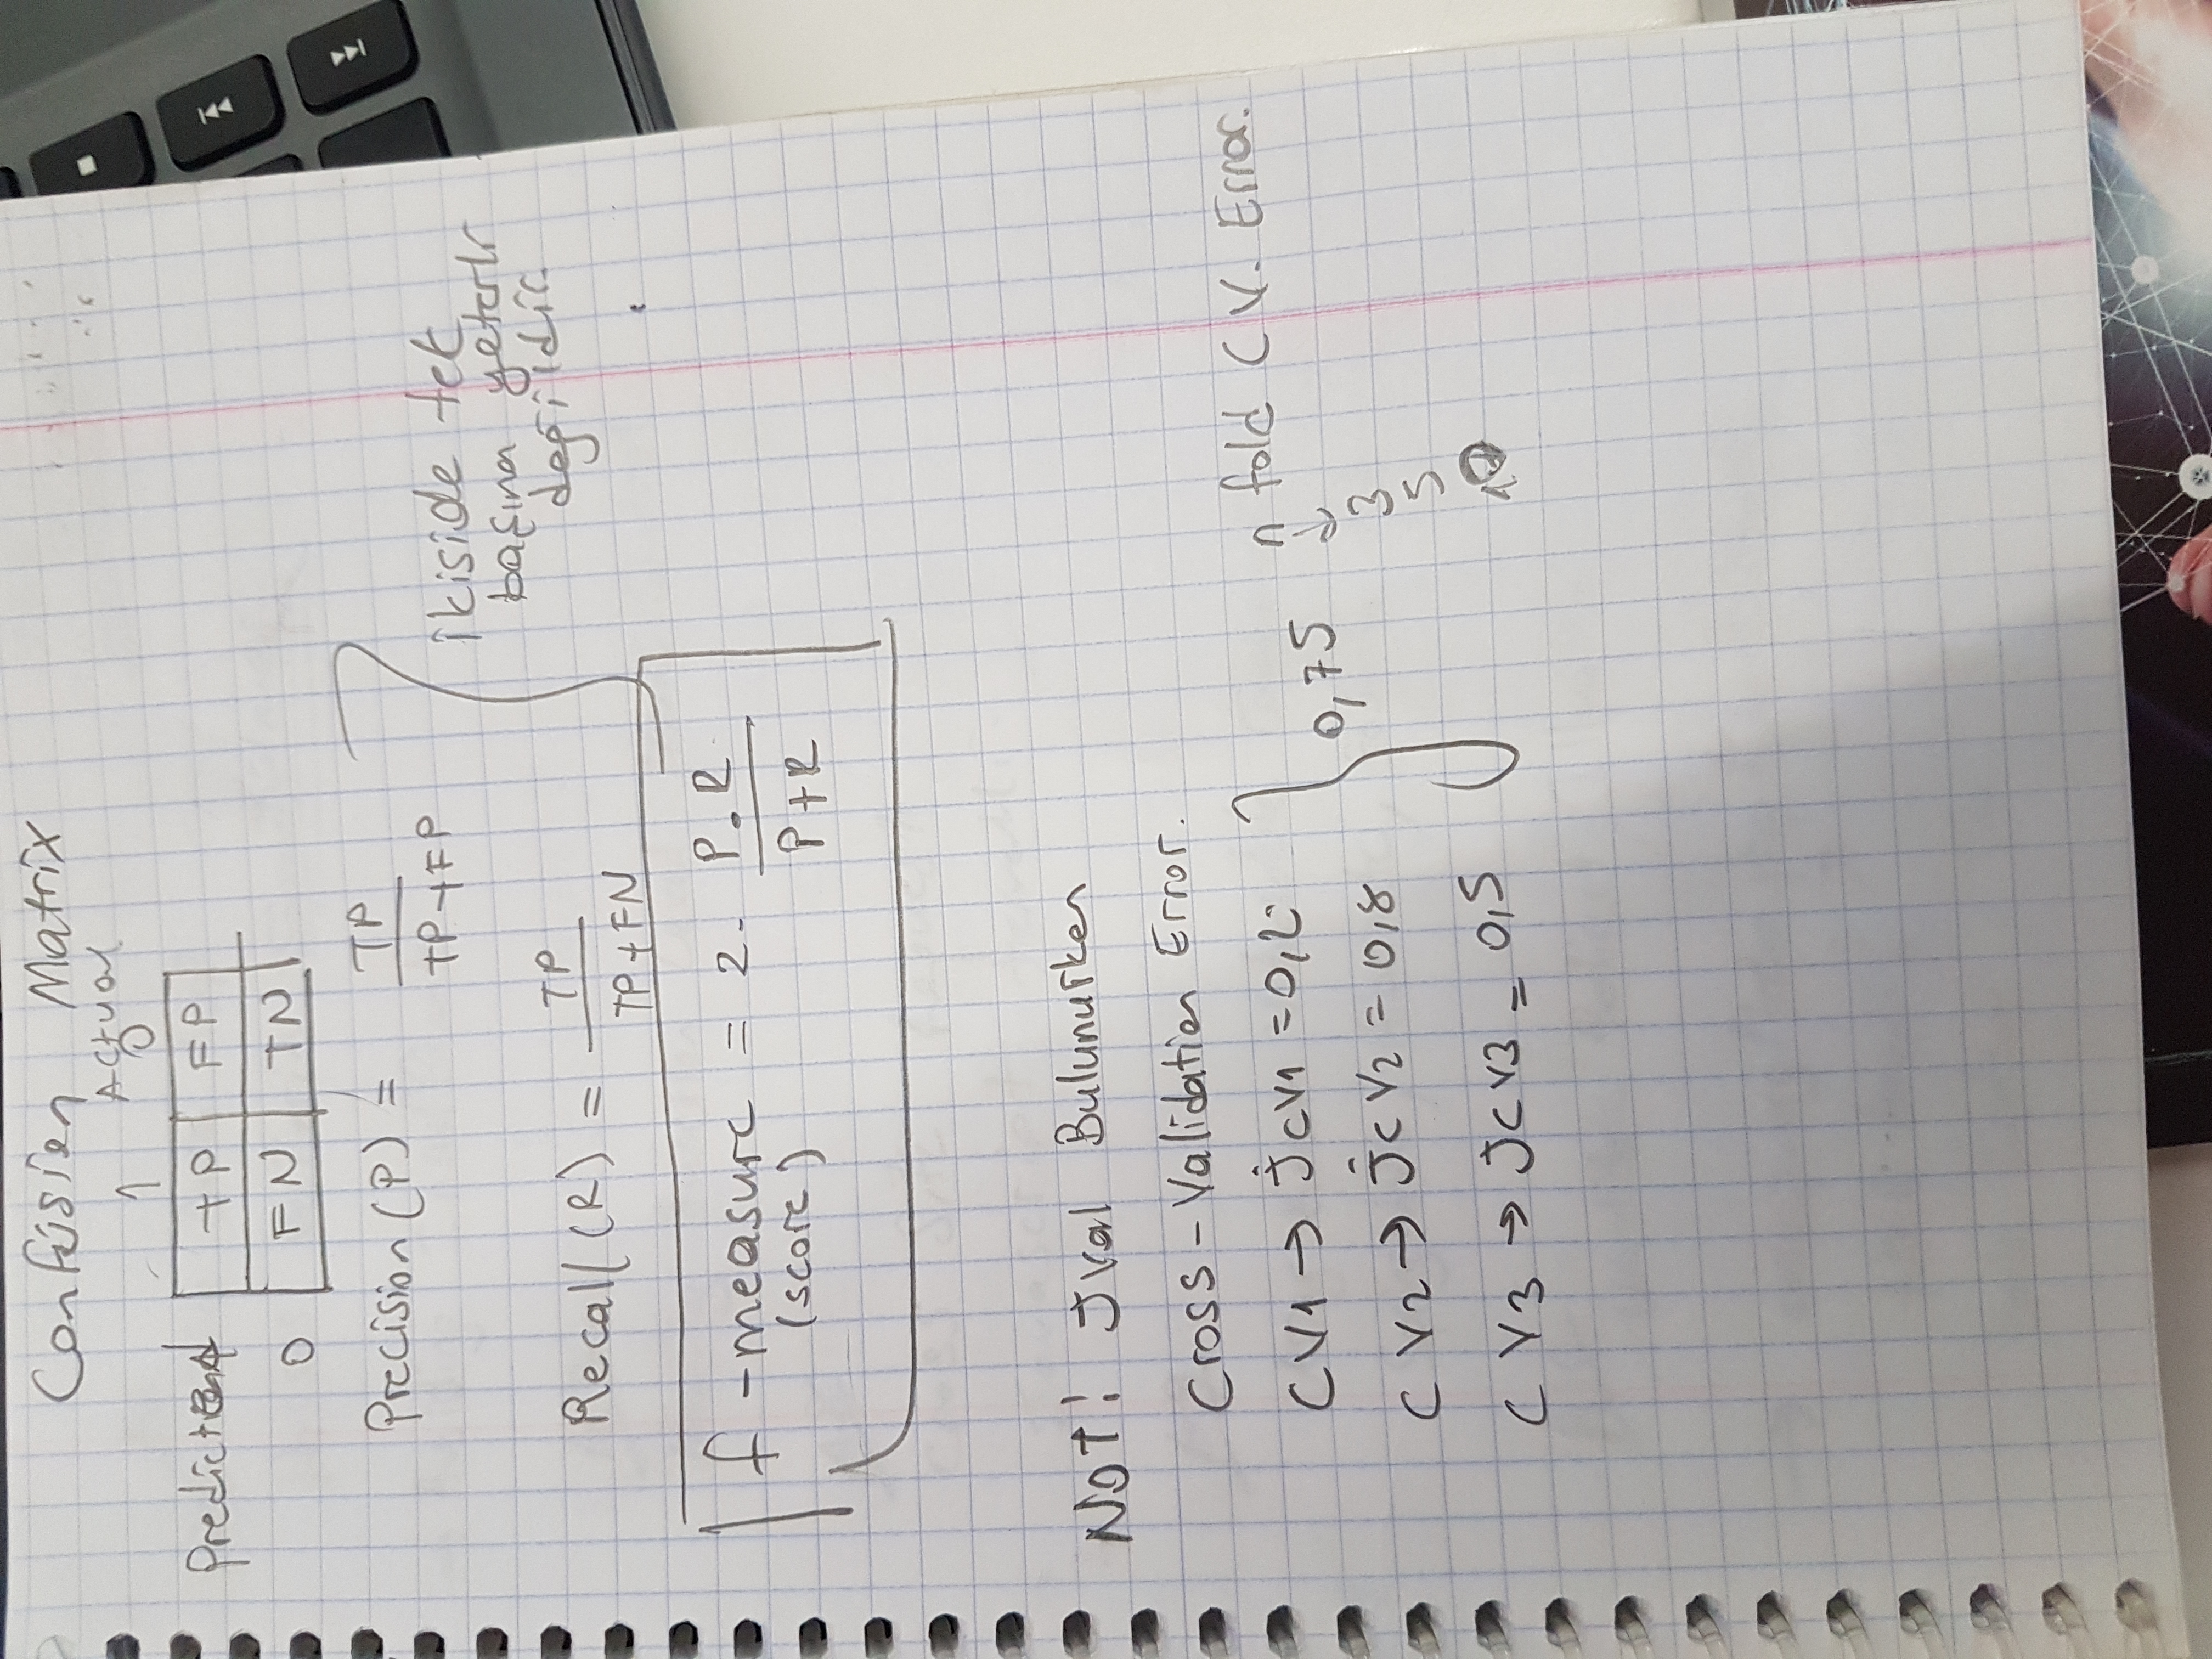 Confusion Matrix
Actual
1 0
Prediction 1 TP FP
0 FN TN
Precision (P) = TP / TP+FP
ikiside tek
başına yeterli
değildir.
Recall (R) = TP / TP+FN
f -measure = 2. P.R / P+R
(score)
NOT! Jval Bulunurken
Cross-Validation Error.
CV1 → jcv1 = 0,2
CV2 → jcv2 = 0,8
CV3 → jcv3 = 0,5
0,75
n fold CV. Error.
↓
3
5
10